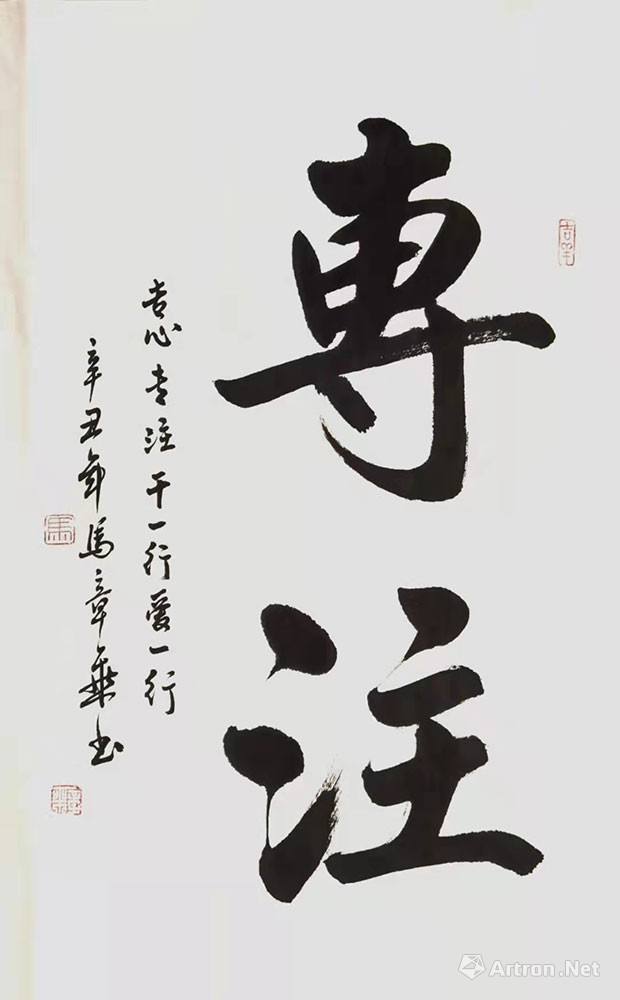 專注
专心专注干一行爱一行
辛丑年馬章華书
馬
Artron.Net